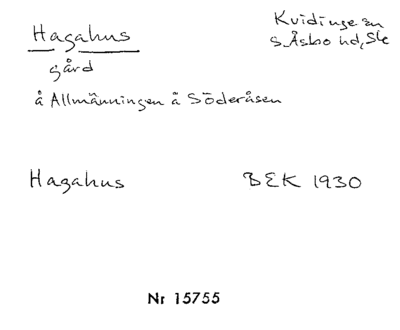 Hagahus
Kvidinge sn
S. Åsbo hd, Sk
gård
å Allmänningen å Söderåsen
Hagahus
BEK 1930
Nr 15755